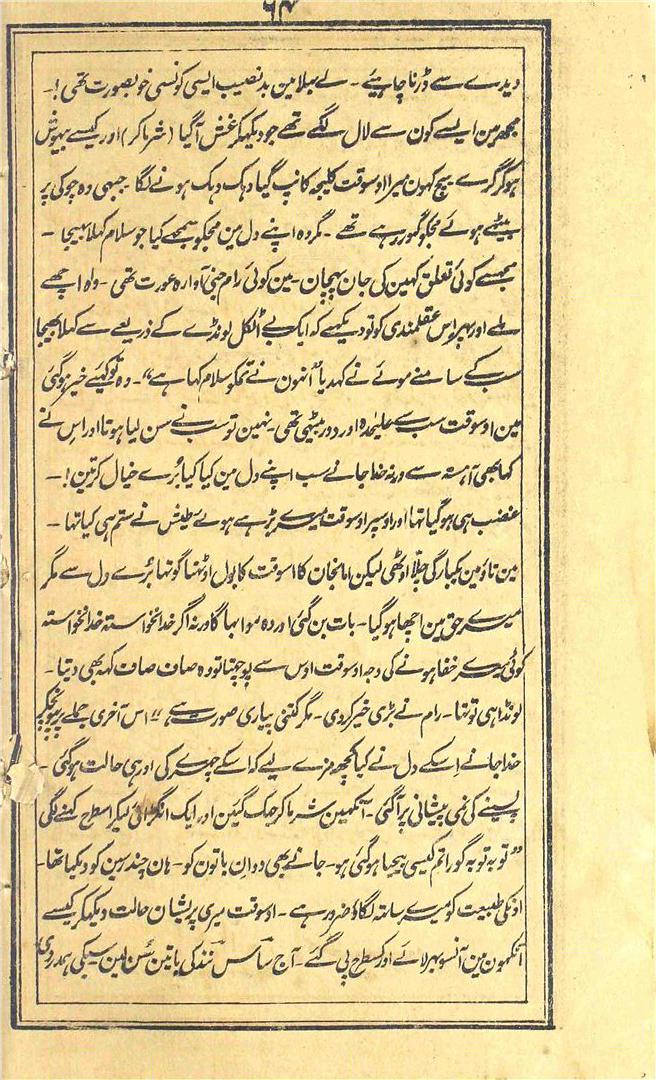 ۶۴
دیدے سے ڈرنا چاہیئے ۔ لے بھلا مین بدنصیب ایسی کونسی خوبصورت تھی !۔
مجھمین ایسے کون سے لال لگے تھے جو دیکھکر غش آگیا (شرماکر) اور کیسے بیہوش
ہوکر گرے سچ کہون میرا اوسوقت کلیجہ کانپ گیا دہک دہک ہونے لگا جبھی وہ چوکی پر
بیٹھے ہوئے مجکو گھور رہے تھے ۔ مگر وہ اپنے دل مین مجکو سمجھے کیا جو سلام کہلا بھیجا ۔
مجھسے کوئی تعلق کہین کی جان پہچان ۔ مین کوئی رام جنی آوارہ عورت تھی ۔ واہ اچھے
ملے اور پہر اس عقلمندی کو تو دیکھیے کہ ایک بے اٹکل لونڈے کے ذریعے سے کہلا بھیجا
سب کے سامنے موئے نے کہدیا ”انہون نے تمکو سلام کہا ہے“ ۔ وہ تو کہیئے خیر ہوگئی
مین اوسوقت سب سے علیحدہ اور دور بیٹھی تھی ۔ نہین تو سب نے سن لیا ہوتا اور اس نے
کہا بھی آہستہ سے ورنہ خدا جانے سب اپنے دل مین کیا کیا بُرے خیال کرتین !۔
غضب ہی ہوگیا تہا اور اوسپر اوسوقت میرے بڑہے ہوئے طیش نے ستم ہی کیا تہا ۔
مین تاؤ مین یکبارگی چلّا اوٹھی لیکن اماںجان کا اسوقت کا بول اوٹھنا گو تہا بُرے دل سے مگر
میرے حق مین اچھا ہوگیا ۔ بات بن گئی اور وہ موا بہاگا ورنہ اگر خدانخواستہ خدانخواستہ
کوئی میرے خفا ہونے کی وجہ اوسوقت اوس سے پوچھتا تو وہ صاف صاف کہہ بھی دیتا ۔
لونڈا ہی تو تہا ۔ رام نے بڑی خیر کردی ۔ مگر کتنی پیاری صورت ہے “ اس آخری جملے پر پہونچکر
خدا جانے اسکے دل نے کیا کچھ مزے لیے کہ اسکے چہرے کی اور ہی حالت ہوگئی ۔
پسینے کی نمی پیشانی پر آگئی ۔ آنکھین شرماکر جھک گئین اور ایک انگڑائی لیکر اسطرح کہنے لگی
”توبہ توبہ گورا تم کیسی بیحیا ہوگئی ہو ۔ جانے بھی دو ان باتون کو ۔ ہان چندر بین کو دیکھا تھا ۔
اونکی طبیعت کو میرے ساتھ لگاؤ ضرور ہے ۔ اوسوقت میری پریشان حالت دیکھکر کیسے
آنکھون مین آنسو بھر لائے اور کسطرح پی گئے ۔ آج ساس نند کی باتین سُن لین سبکی ہمدردی